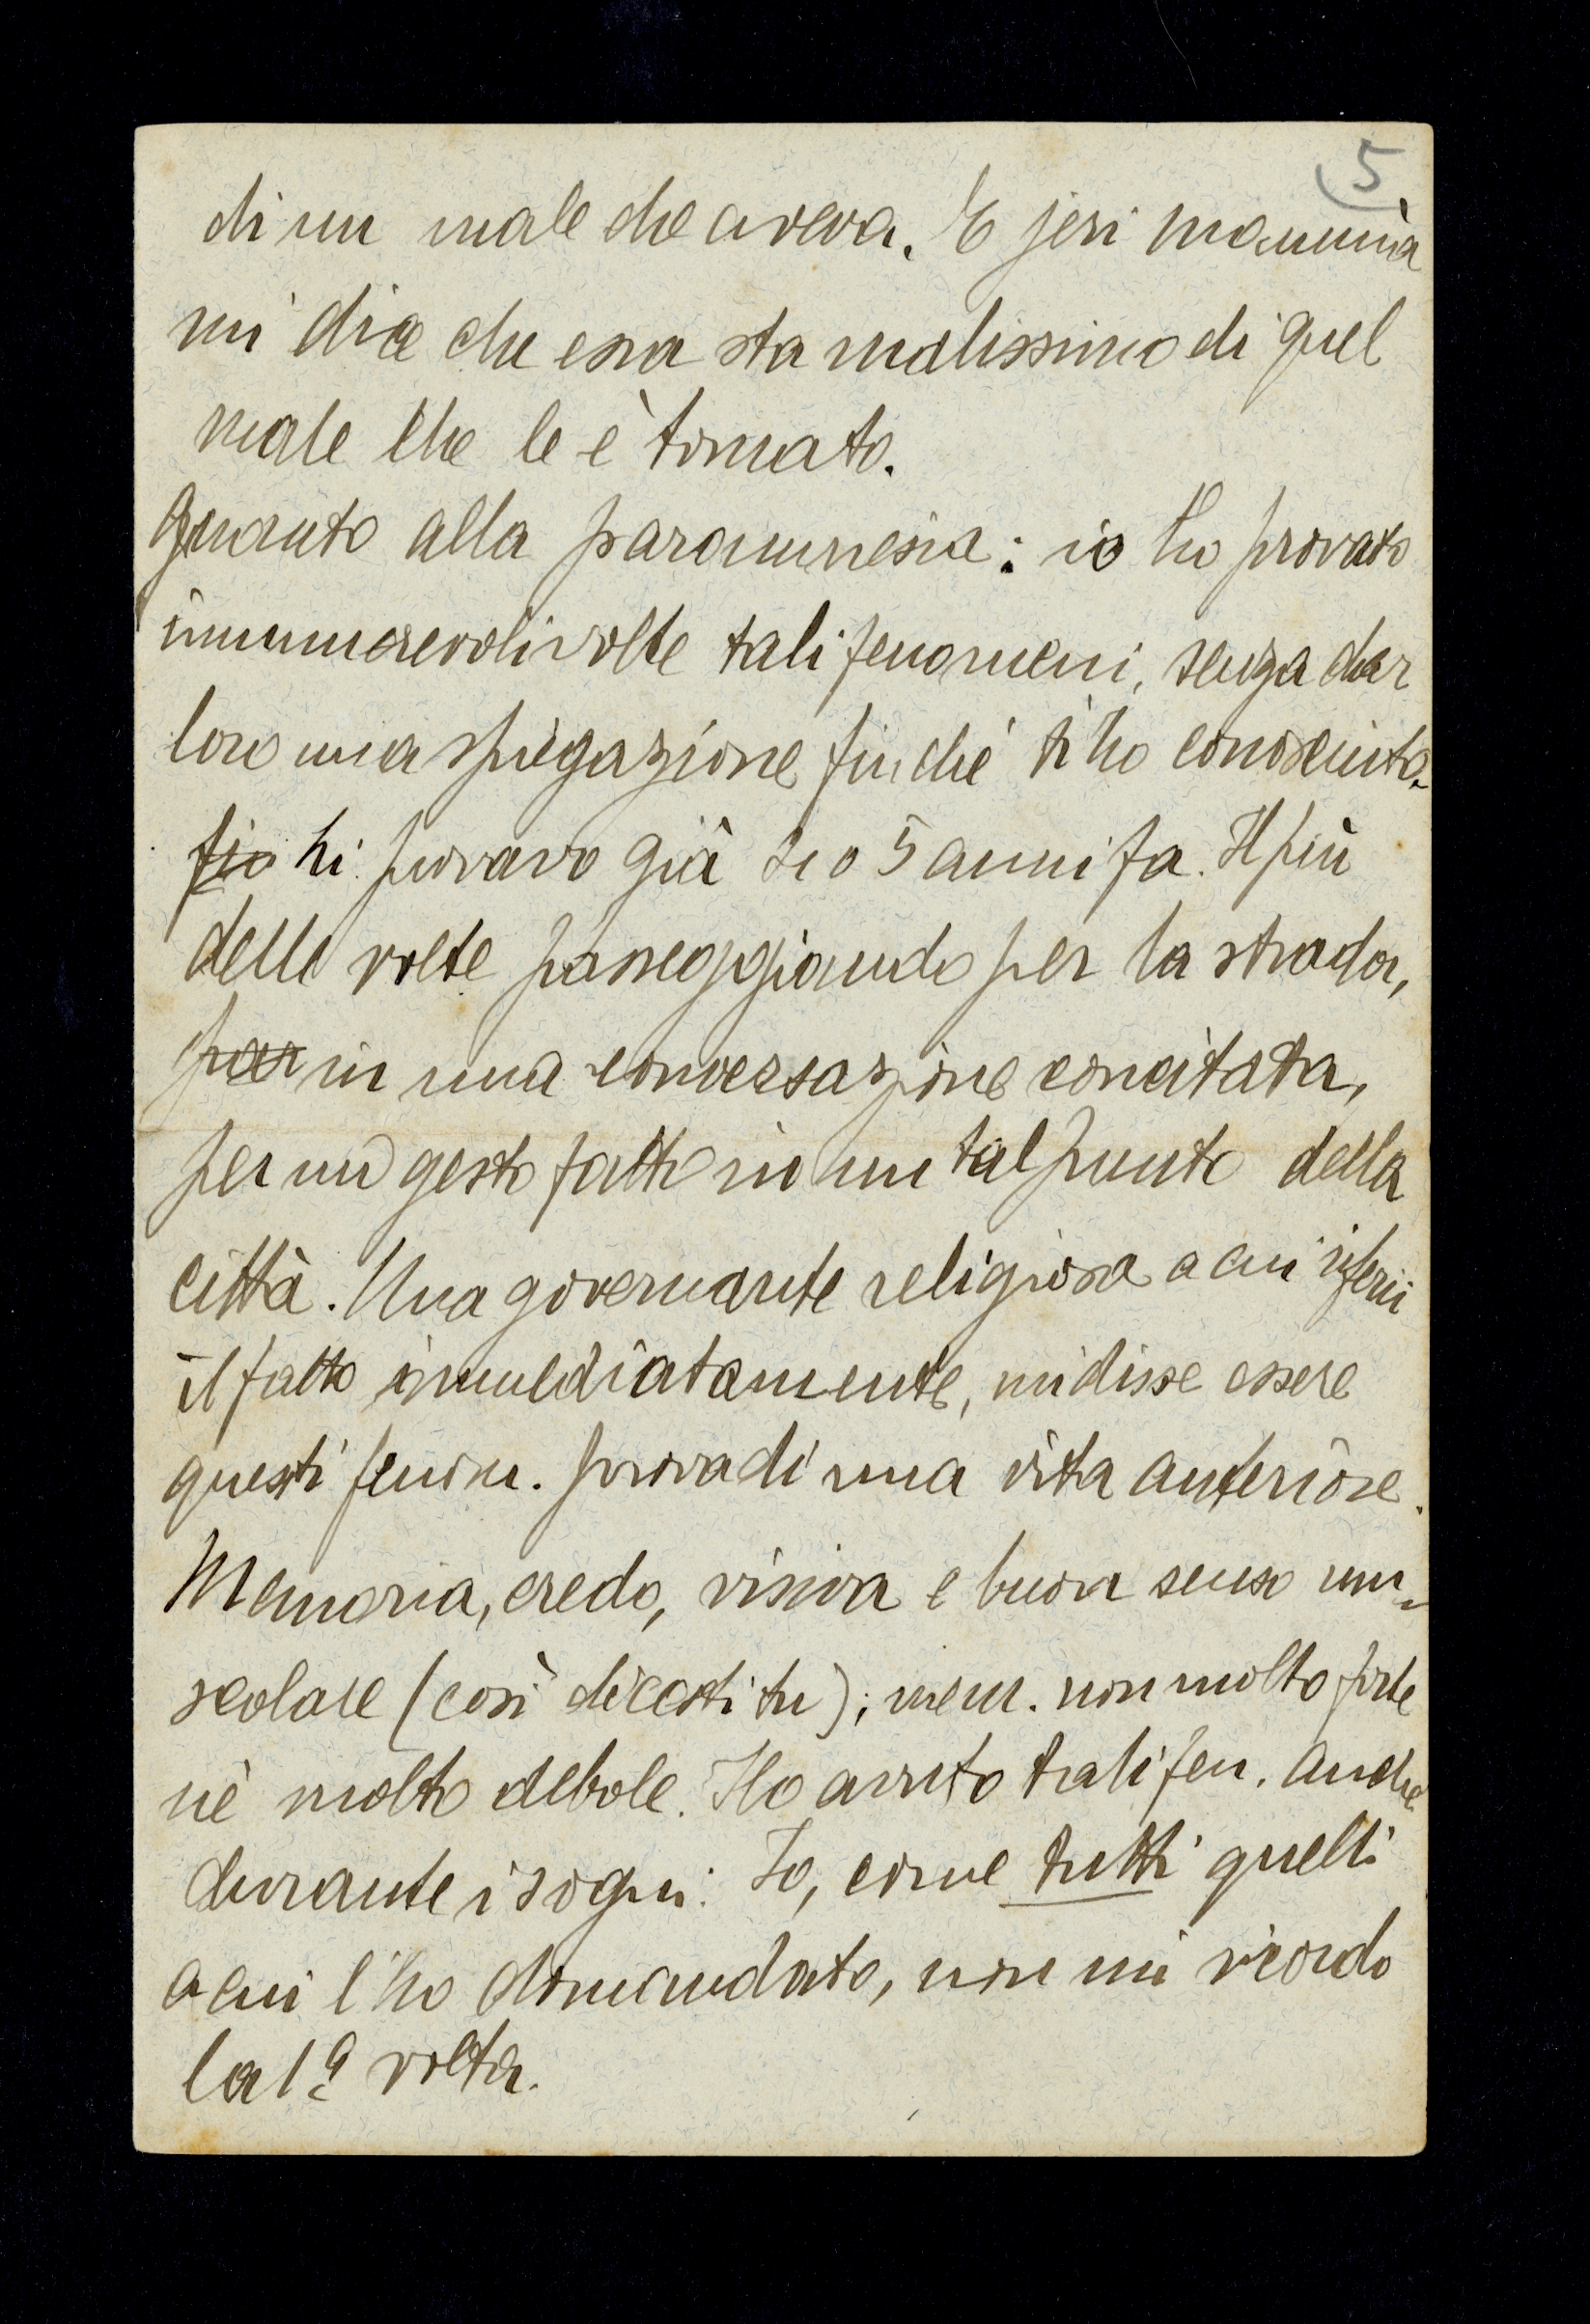 5
di un male che aveva. E jeri mammà
mi dice che essa sta malissimo di quel
male che le è tornato.
Quanto alla paramnesia: io ho provato
innumerevoli volte tali fenomeni, senza dar
loro una spiegazione finché ti ho conosciuto.
fio li provavo già 4 o 5 anni fa. Il più
delle volte passeggiando per la strada,
per in una conversazione concitata,
per un gesto fatto in un tal punto della
città. Una governante religiosa a cui riferii
il fatto immediatamente, mi disse essere
questi fenom. prova di una vita anteriore.
Memoria, credo, visiva e buon senso mu-
scolare (così dicesti tu); mem. non molto forte
nè molto debole. Ho avuto tali fen. anche
durante i sogni. Io, come tutti quelli
a cui l'ho domandato, non mi ricordo
la 1ª volta.